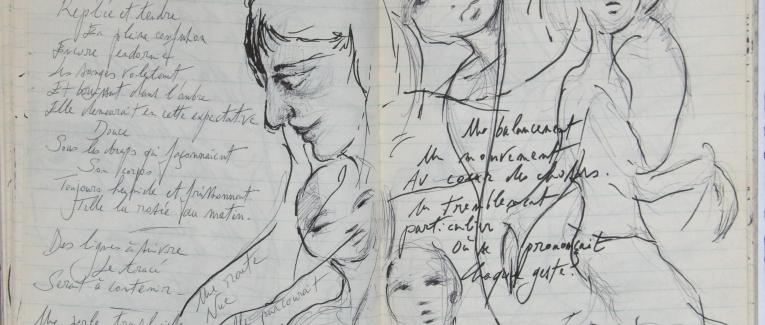 Replié et tendre
En pleine confusion
Encore endormie
Les songes voletant
Et dans l'ombre
Elle demeurait en cette expectative
Douce
Sous les draps qui façonnaient
Son corps
Toujours humide et frissonnant
Telle la rosée du matin.
Des lignes à suivre
Le tracé
Serait à contenir
Une route
Nue
parcourait
Une
Un balancement
Un mouvement
Au cœur des choses.
Un tremblement
particulier
Où se prononçait
Chaque geste.